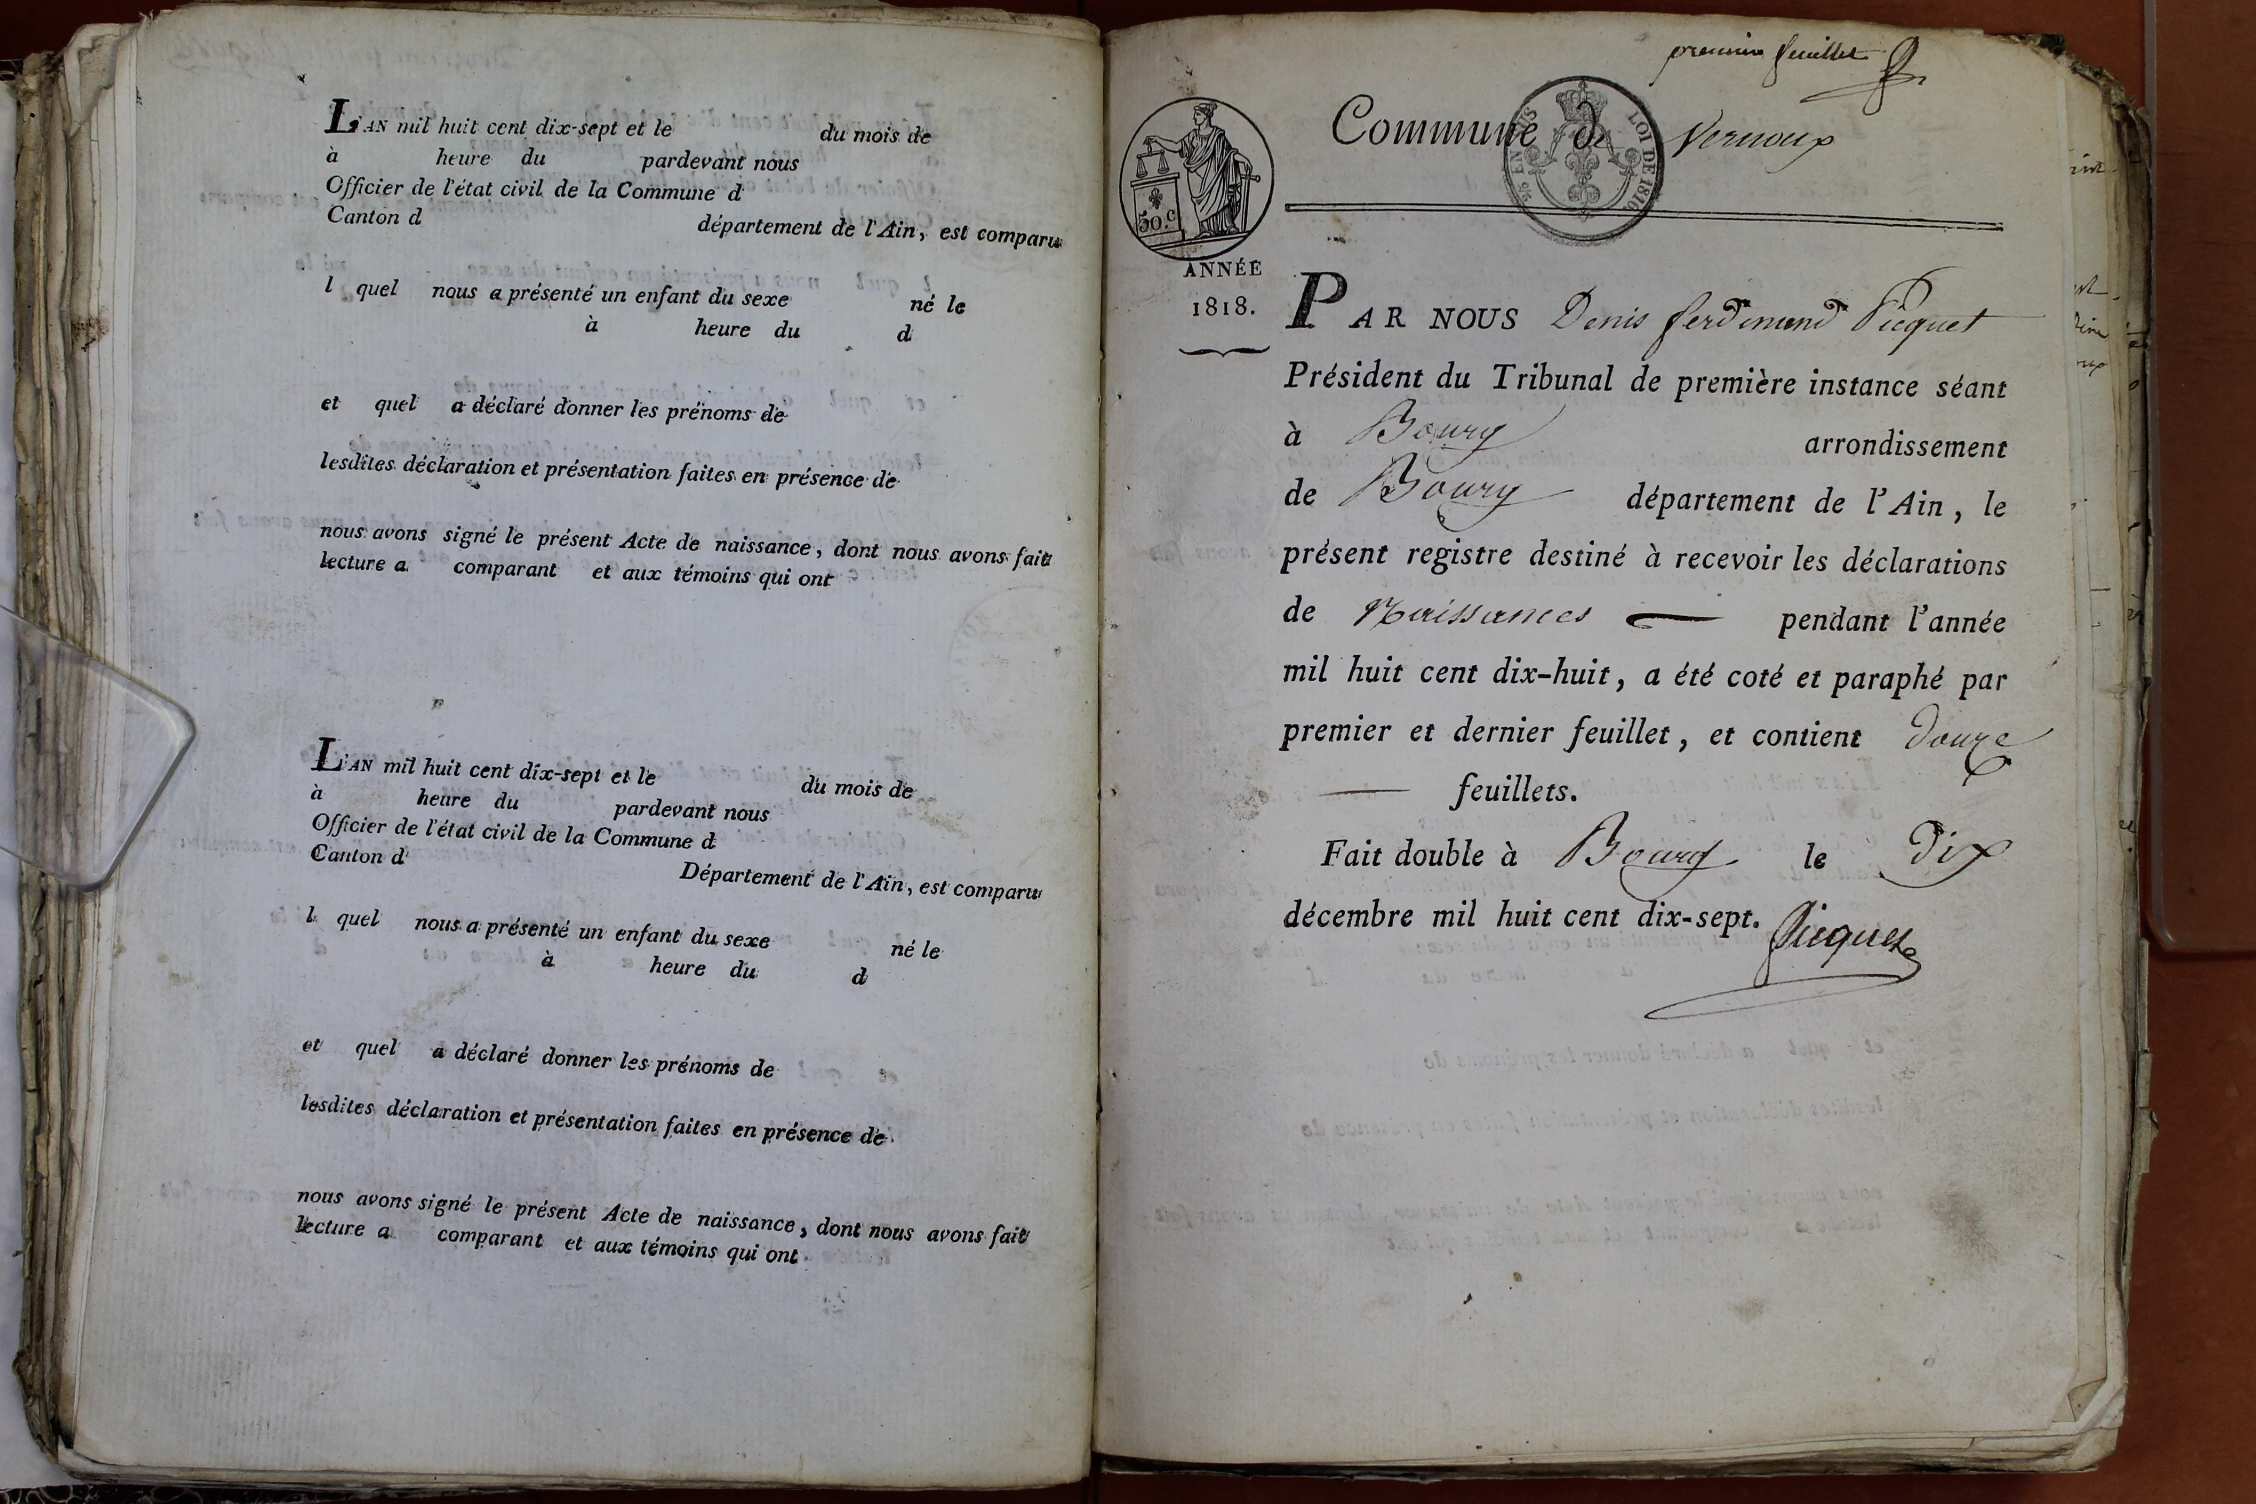 L'AN mil huit cent dix-sept et le du mois de
à heure du pardevant nous
Officier de l'état civil de la Commune d
Canton d département de l'Ain, est comparu
l quel nous a présenté un enfant du sexe né le
à heure du d
et quel a déclaré donner les prénoms de
lesdites déclaration et présentation faites en présence de
nous avons signé le présent Acte de naissance, dont nous avons fait
lecture a comparant et aux témoins qui ont
L'AN mil huit cent dix-sept et le du mois de
à heure du pardevant nous
Officier de l'état civil de la Commune d
Canton d Département de l'Ain, est comparu
l quel nous a présenté un enfant du sexe né le
à heure du d
et quel a déclaré donner les prénoms de
lesdites déclaration et présentation faites en présence de
nous avons signé le présent Acte de naissance, dont nous avons fait
lecture a comparant et aux témoins qui ont
premier feuillet
Commune de Vernoux
EN SUS LOI DE 1816
50.c
ANNÉE
1818.
PAR NOUS Denis ferdinand Picquet
Président du Tribunal de première instance séant
à Bourg arrondissement
de Bourg département de l'Ain, le
présent registre destiné à recevoir les déclarations
de Naissances pendant l'année
mil huit cent dix-huit, a été coté et paraphé par
premier et dernier feuillet, et contient douze
feuillets.
Fait double à Bourg le dix
décembre mil huit cent dix-sept.
Picquet